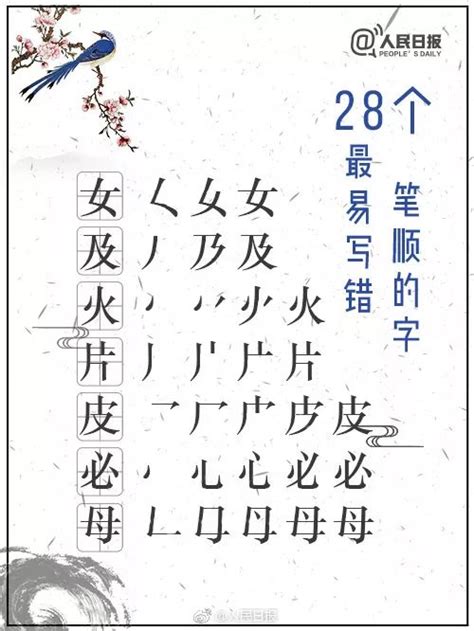 @人民日报
PEOPLE'S DAILY
28个
最易写错
笔顺的字
女 𡿨 女 女
及 丿 乃 及
火 丶 丷 火 火
片 丿 片
皮 乛 厂 皮
必 丶 心 必 必
母 𠃊 母 母
@人民日报